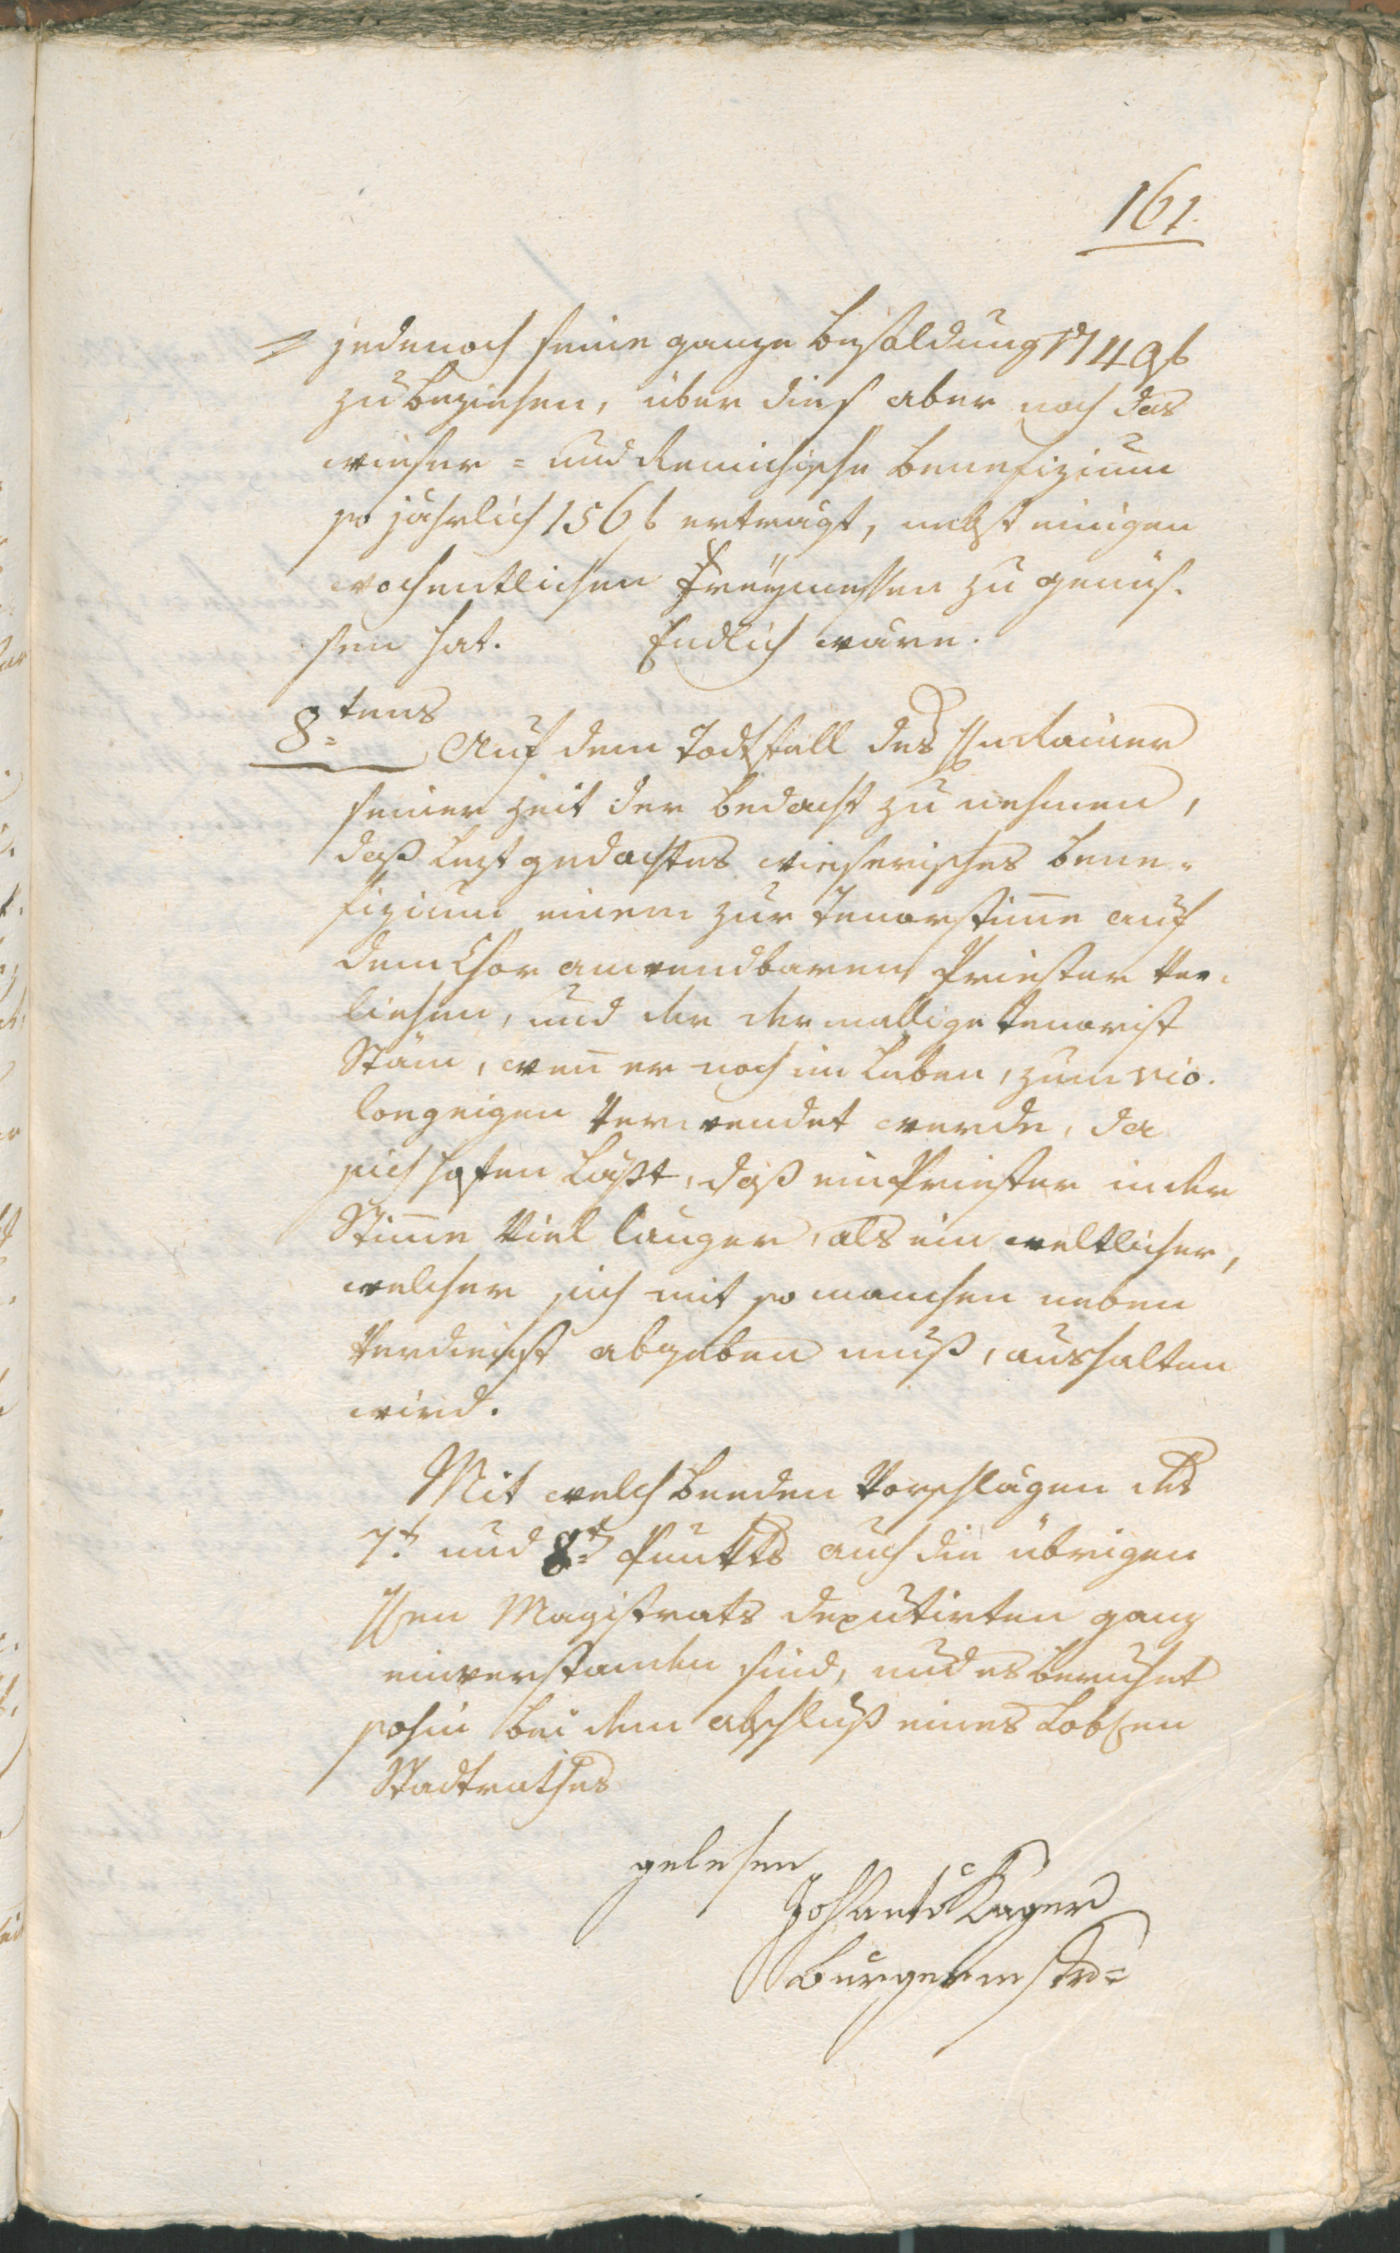 161.
jedenoch seine ganze Besoldung 149 f
zu beziehen, über dies aber noch das
wieser= und Remichische Benefizium
so jährlich 156 f ertragt, nebst einigen
wochentlichen Freÿmessen zu genüs-
sen hat. Endlich wäre.
8tens Auf dem Todtfall des Hrn Rainer
seiner Zeit der bedacht zu nehmen,
daß lezt gedachtes wieserisches Bene-
fizium einem zur Tenorstim̄e auf
dem Chor anwendbaren Priester ver-
liehen, und der dermallige Tenorist
Stäm, wen̄ er noch im Leben, zum vio-
longeigen verwendet werde, da
sich hofen läßt, daß ein Priester in der
Stim̄e viel länger, als ein weltlicher,
welcher sich mit so manchen neben
verdienst abgeben muß, aushalten
wird.
Mit welch beeden Vorschlägen des
7t und 8t Punkts auch die übrigen
Hen Magistrats deputirten ganz
einverstanden sind, und es beruhet
sohin bei dem abschluß eines Lobl.en
Stadtrathes
gelesen
Joh Anto Kager
Burgermstr=